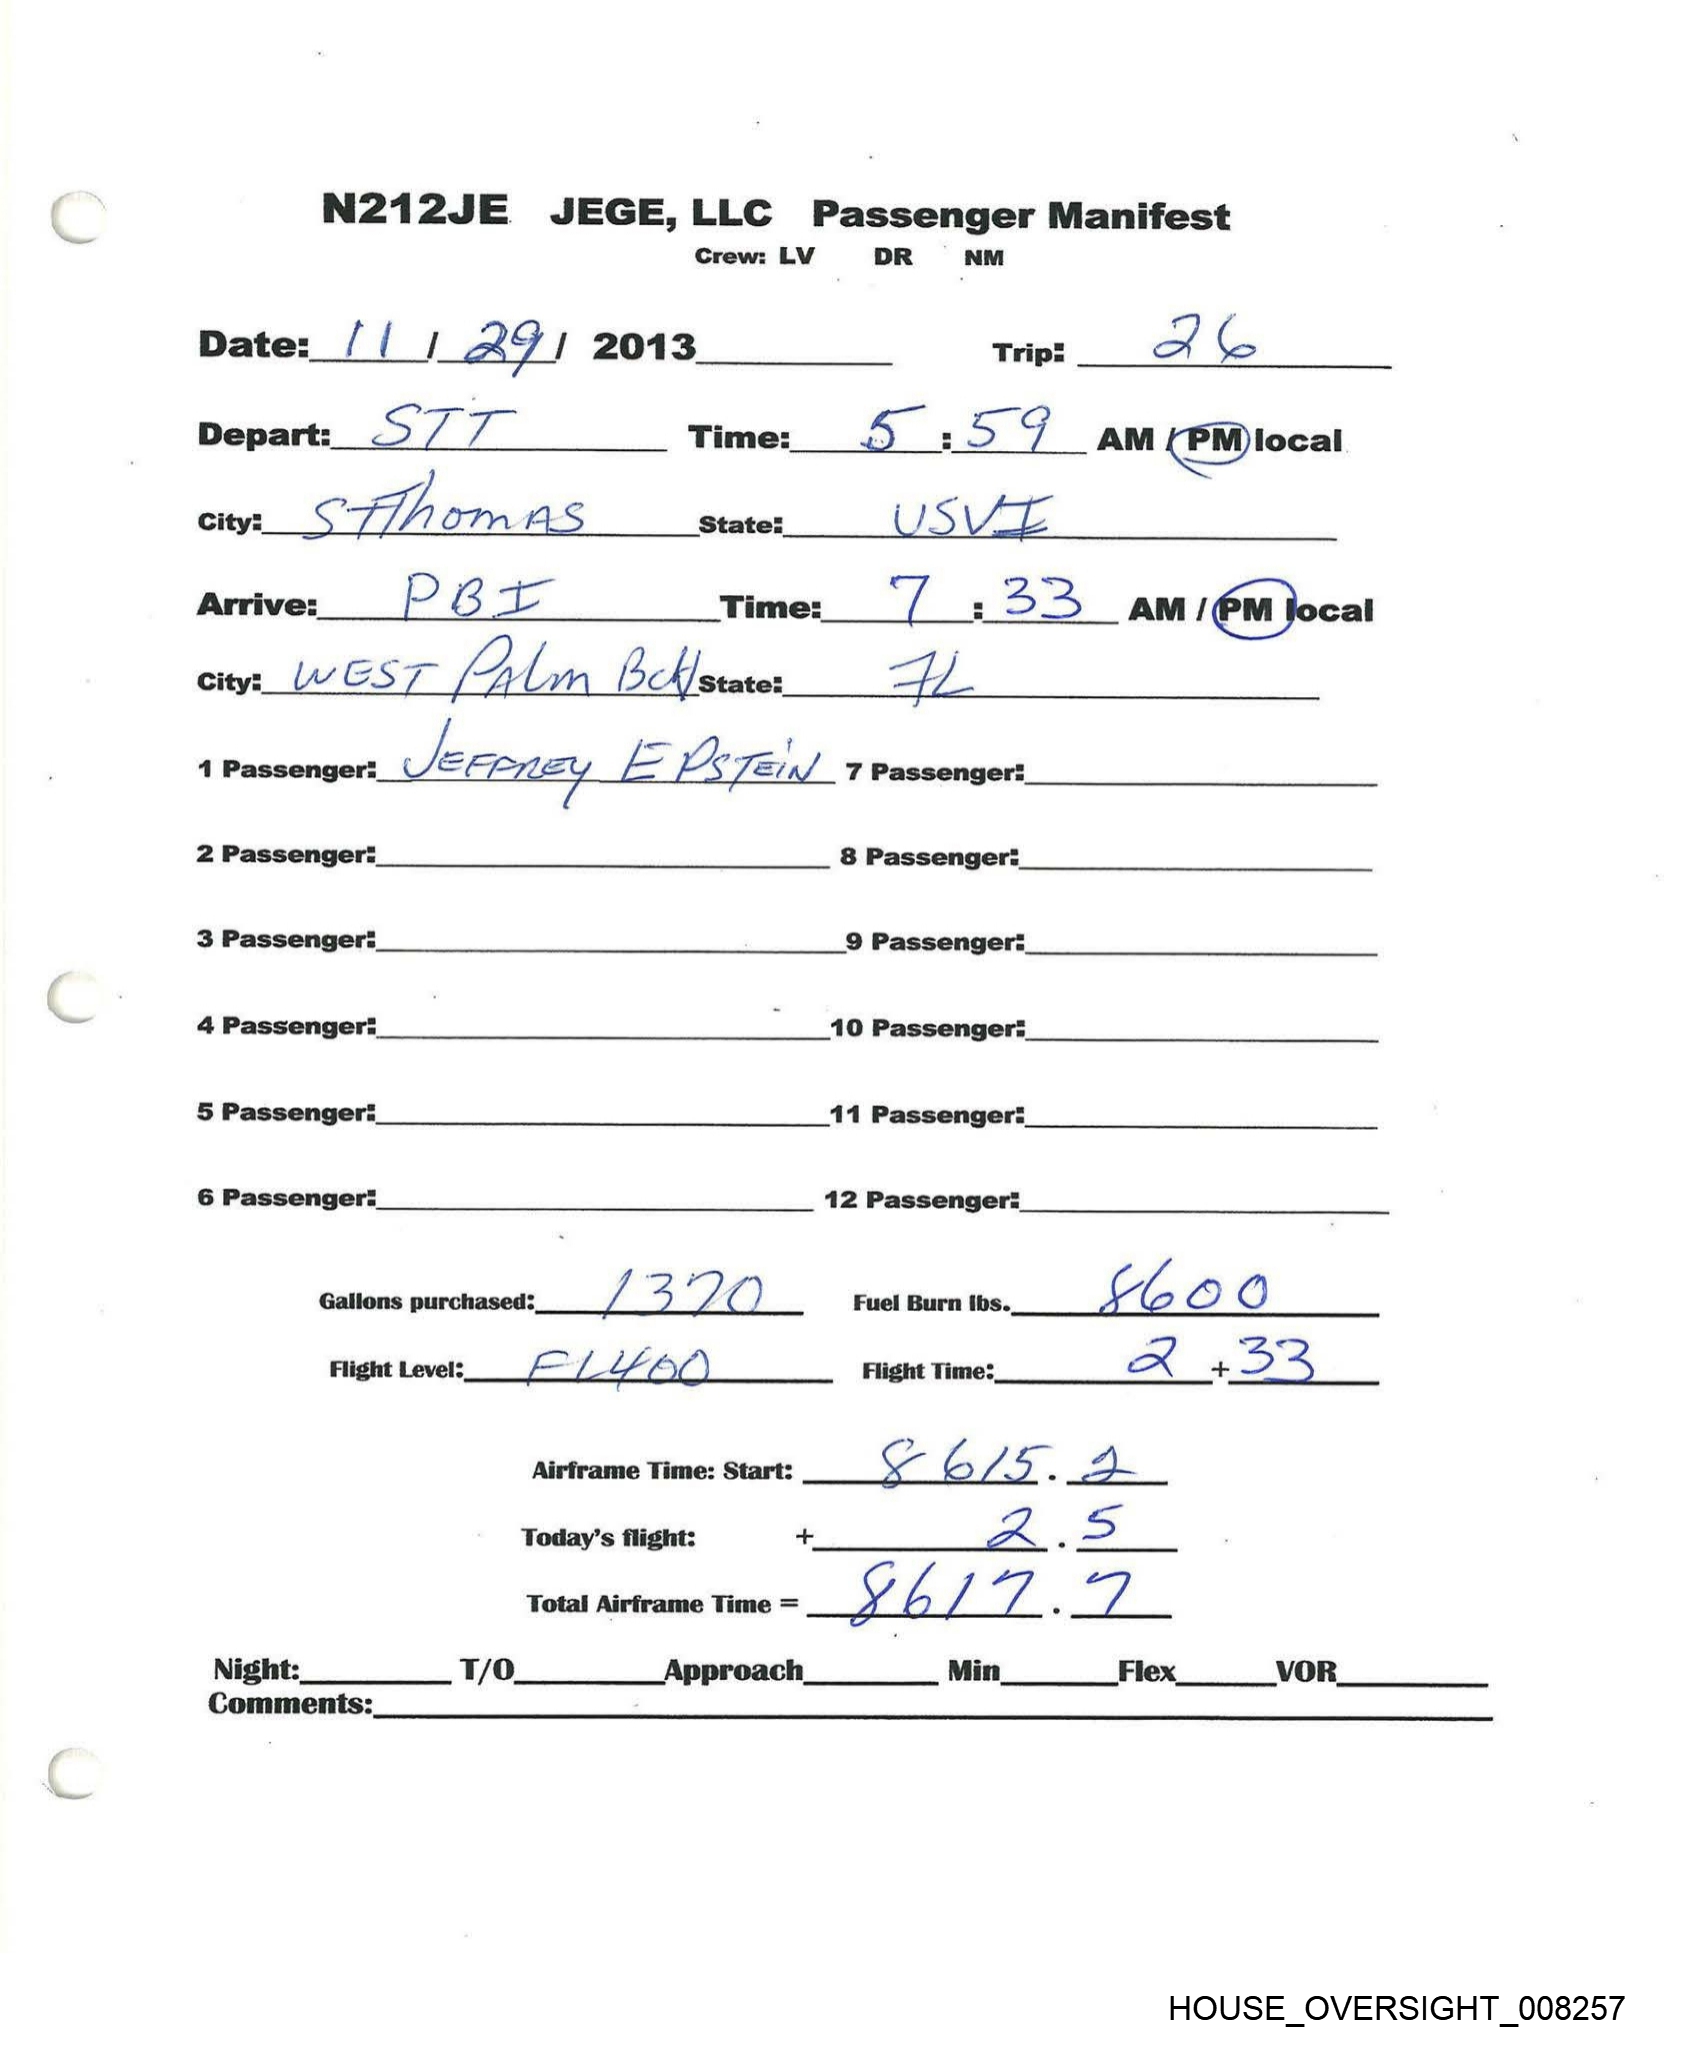 N212JE JEGE, LLC Passenger Manifest
Crew: LV DR NM
Date: 11 / 29 / 2013 Trip: 26
Depart: STT Time: 5 : 59 AM / PM local
City: St Thomas State: USVI
Arrive: PBI Time: 7 : 33 AM / PM local
City: WEST PAlm BcH State: FL
1 Passenger: JEFFREY EPSTEiN 7 Passenger:
2 Passenger: 8 Passenger:
3 Passenger: 9 Passenger:
4 Passenger: 10 Passenger:
5 Passenger: 11 Passenger:
6 Passenger: 12 Passenger:
Gallons purchased: 1370 Fuel Burn lbs. 8600
Flight Level: FL400 Flight Time: 2 + 33
Airframe Time: Start: 8615 . 2
Today's flight: + 2 . 5
Total Airframe Time = 8617 . 7
Night: T/O Approach Min Flex VOR
Comments:
HOUSE_OVERSIGHT_008257